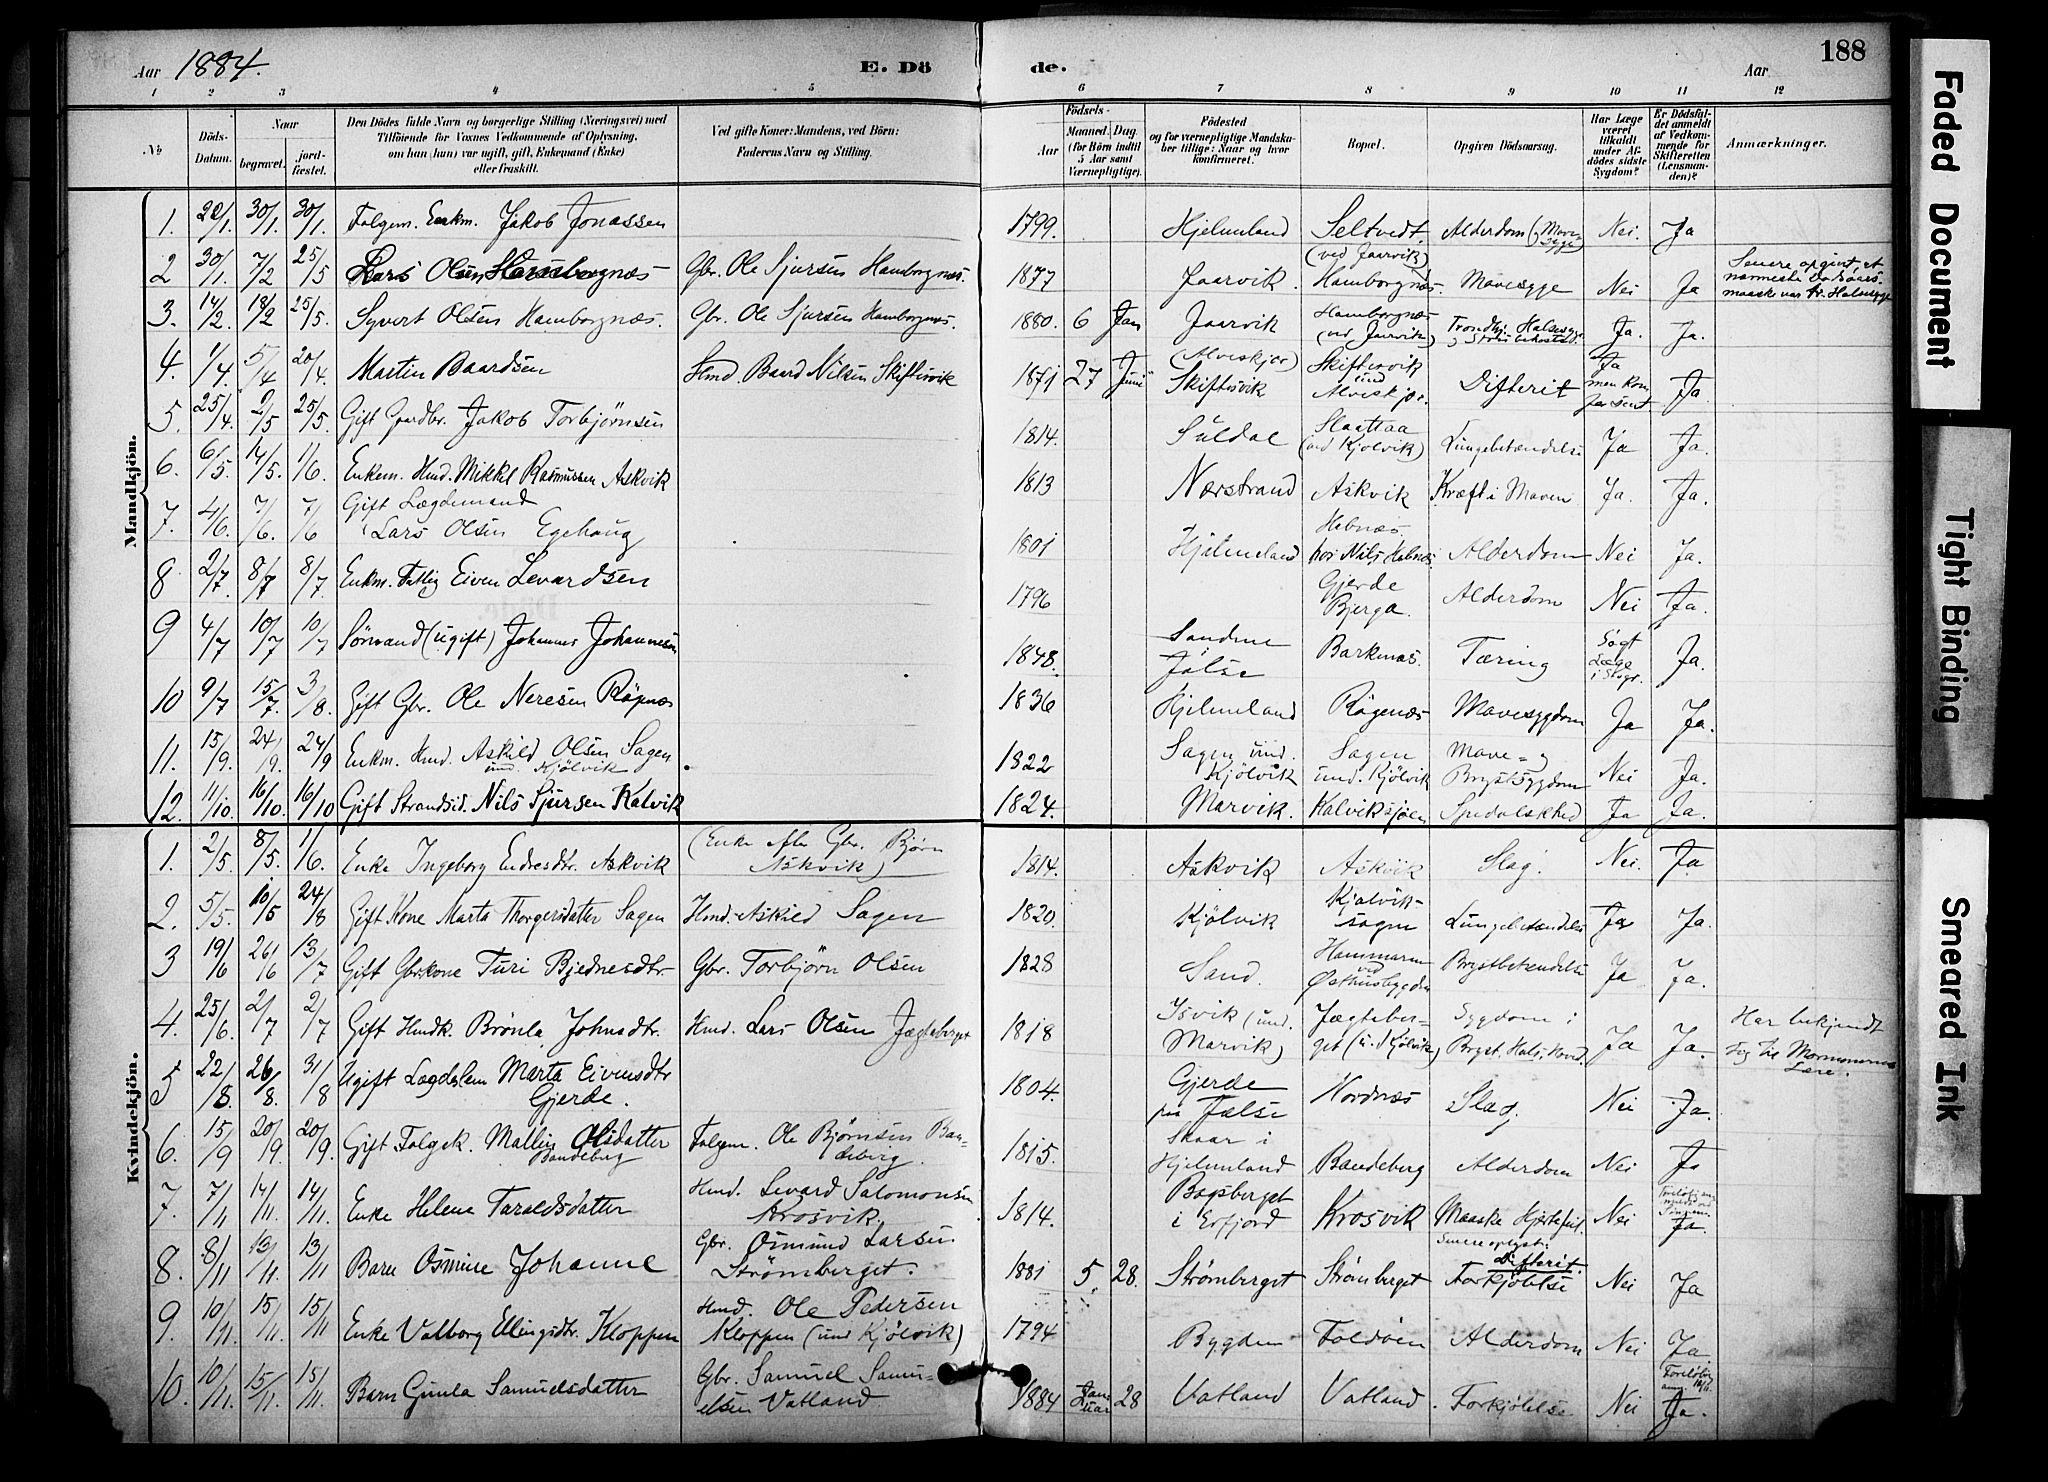 Aar 1884. E. Dö de. Aar 188
1 2 3 4 5 6 7 8 9 10 11 12
No
Döds-Datum.
Naar begravet. jordfæstet.
Den Dödes fulde Navn og borgerlige Stilling (Næringsvei) med Tilföiende for Voxnes Vedkommende af Oplysning, om han (hun) var ugift, gift, Enkemand (Enke) eller fraskilt.
Ved gifte Koner: Mandens, ved Börn: Faderens Navn og Stilling.
Födsels-
Aar
Maaned. Dag. (for Börn indtil 5 Aar samt Værnepligtige).
Födested og for værnepligtige Mandskaber tillige: Naar og hvor konfirmeret.
Bopæl.
Opgiven Dödsaarsag.
Har Læge været tilkaldt under Afdödes sidste Sygdom?
Er Dödsfaldet anmeldt af Vedkommende for Skifteretten (Lensmanden)?
Anmærkninger.
Mandkjön.
1. 22/1. 30/1. 30/1. Folgem. Enkm. Jakob Jonassen 1799. Hjelmeland Seltvedt. (ved Jaarvik) Alderdom (Mavesyge) Nei. Ja
2 30/1. 7/2 25/5 Lars Olsen Hamborgnæs Gbr. Ole Sjursen Hamborgnæs. 1877 Jaarvik. Hamborgnæs. Mavesyge Nei Ja Senere opgivet, at nærmeste Dødsaars. maaske var Halssyge
3. 14/2. 18/2 25/5. Syvert Olsen Hamborgnæs. Gbr. Ole Sjursen Hamborgnæs. 1880. 6 Jan Jaarvik Hamborgnæs (ved Jaarvik) Halssyge Ja. Ja.
4. 1/4. 5/4 20/4. Martin Baardsen Hmd. Baard Nilsen Skiftesvik 1871 27 Juni (Alveskjær) Skiftesvik Skiftesvik und Alveskjær. Difterit Ja men kom for sent Ja.
5. 25/4. 2/5 25/5. Gift Gaardbr. Jakob Torbjörnsen 1814. Suldal Slaattaa (ved Kjölvik) Lungebetændelse Ja Ja.
6. 6/5. 14/5. 1/6. Enkem. Hmd. Mikkel Rasmussen Askvik 1813 Nærstrand Askvik Kræft i Maven Ja. Ja.
7. 4/6. 7/6. 7/6 Gift Lægdemand Lars Olsen Egehaug 1801 Hjelmeland Hebnæs hos Nils Hebnæs Alderdom Nei Ja.
8 2/7. 8/7 8/7. Enkm. Fattig Eiven Levardsen 1796 Gjerde Bjerga. Alderdom Nei Ja.
9 4/7 10/7 10/7 Sömand (ugift) Johannes Johannesen 1848. Sandnæ i Jelse Barkenæs. Tæring Søgt Læge i Stvgr. Ja.
10 9/7 15/7. 3/8. Gift Gbr. Ole Neresen Rögnæs 1836 Hjelmeland Rögenæs Mavesygdom Ja Ja.
11. 15/9. 24/9. 24/9 Enkm. Hmd. Askild Olsen Sagen und. Kjölvik 1822 Sagen und. Kjölvik Sagen und. Kjölvik Mave- og Brystsygdom Nei Ja.
12. 11/10. 16/10. 16/10 Gift Strandsid. Nils Sjursen Kalvik 1824. Marvik. Kalviksjøen Spedalskhed Ja Ja.
Kvindekjön.
1. 2/5. 8/5. 1/6. Enke Ingeborg Endresdtr. Askvik (Enke efter Gbr. Bjørn Askvik) 1814. Askvik Askvik Slag. Nei. Ja
2. 5/5. 10/5 24/8 Gift Kone Marta Thorgersdatter Sagen Hmd. Askild Sagen 1820. Kjölvik Kjølviksagen Lungebetændelse Ja Ja.
3 19/6 26/6 13/7 Gift Gbrkone Turi Bjednesdtr. Gbr. Torbjörn Olsen 1828 Sand. Hammaren ved Østhusbygden Brystbetændelse Ja Ja.
4. 25/6. 2/7 2/7 Gift Hmdk. Brönla Johnsdtr. Hmd. Lars Olsen Jægteberget 1818 Isvik (und. Marvik) Jægteberget (u. Kjölvik) Sygdom i Bryst, Hals, Hoved Ja Ja. Har bekjendt sig til Mormonernes Lære.
5 22/8. 26/8. 31/8 Ugift Lægdslem Marta Eivensdtr Gjerde. 1804. Gjerde paa Jelse Nordnæs Slag. Nei Ja.
6. 15/9 20/9. 20/9. Gift Folgek. Malene Olsdatter Bandeberg Folgem. Ole Bjørnsen Bandeberg. 1815. Skaar i Hjelmeland Bandeberg Alderdom Nei Ja
7. 7/11 14/11. 14/11. Enke Helene Taraldsdatter Hmd. Levard Salomonsen Krosvik. 1814. Bogsberget i Erfjord Krosvik Maaske Hjertefeil. Nei Ja.
8. 8/11 13/11. 13/11 Barn Osmine Johanne Gbr. Osmund Larsen Strømberget. 1881 5. 28. Strømberget Strømberget Senere oplyst: Difterit. Forkjølelse Nei Ja
9. 10/11. 15/11. 15/11 Enke Valborg Ellingsdtr. Kloppen Hmd. Ole Pedersen Kloppen (und Kjölvik) 1794 Bygden Foldøen Alderdom Nei Ja
10. 10/11. 15/11. 15/11. Barn Gunla Samuelsdatter Gbr. Samuel Samuelsen Vatland 1884 Januar 28 Vatland Vatland. Forkjølelse Nei Ja.
Faded Document
Tight Binding
Smeared Ink